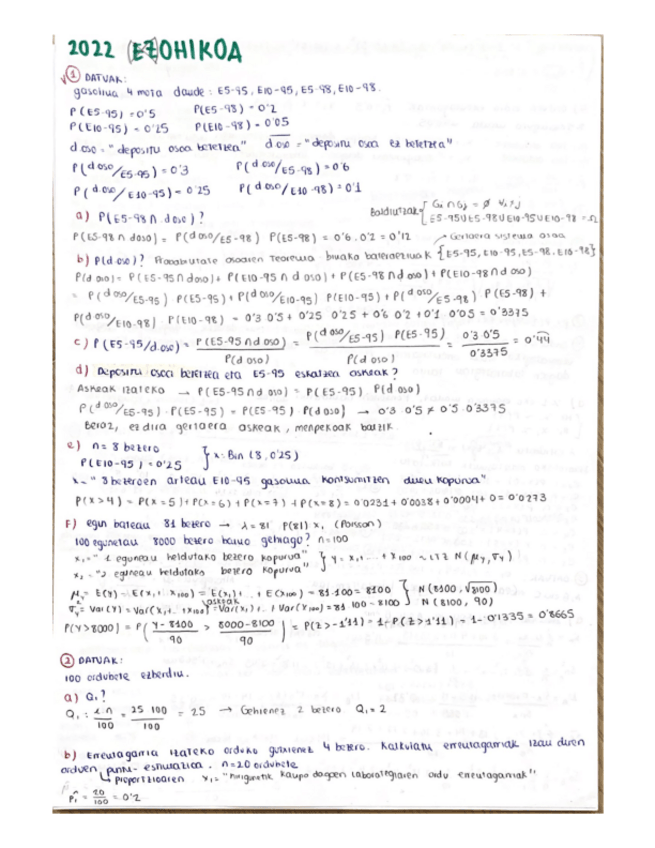 2022 (EZ)OHIKOA
① DATUAK:
gasolina 4 mota daude: E5-95, E10-95, E5-98, E10-98.
P(E5-95) = 0'5   P(E5-98) = 0'2
P(E10-95) = 0'25   P(E10-98) = 0'05
d oso = "depositu osoa betetzea"   d oso = "depositu osoa ez betetzea"
P(d oso/E5-95) = 0'3   P(d oso/E5-98) = 0'6
P(d oso/E10-95) = 0'25   P(d oso/E10-98) = 0'1
a) P(E5-98 ∩ d oso)?   Baldintzak { Gi ∩ Gj = ∅ ∀ i≠j
E5-95 ∪ E5-98 ∪ E10-95 ∪ E10-98 = Ω
P(E5-98 ∩ d oso) = P(d oso/E5-98) · P(E5-98) = 0'6 · 0'2 = 0'12   → Gertaera sistema osoa
b) P(d oso)? Probabilitate osoaren Teorema binako bateraezinak {E5-95, E10-95, E5-98, E10-98}
P(d oso) = P(E5-95 ∩ d oso) + P(E10-95 ∩ d oso) + P(E5-98 ∩ d oso) + P(E10-98 ∩ d oso)
= P(d oso/E5-95) · P(E5-95) + P(d oso/E10-95) · P(E10-95) + P(d oso/E5-98) · P(E5-98) +
P(d oso/E10-98) · P(E10-98) = 0'3 · 0'5 + 0'25 · 0'25 + 0'6 · 0'2 + 0'1 · 0'05 = 0'3375
c) P(E5-95/d oso) = P(E5-95 ∩ d oso)/P(d oso) = P(d oso/E5-95) · P(E5-95)/P(d oso) = 0'3 · 0'5/0'3375 = 0'44
d) Depositu osoa betetzea eta E5-95 eskatzea askeak?
Askeak izateko → P(E5-95 ∩ d oso) = P(E5-95) · P(d oso)
P(d oso/E5-95) · P(E5-95) = P(E5-95) · P(d oso) → 0'3 · 0'5 ≠ 0'5 · 0'3375
Beraz, ez dira gertaera askeak, menpekoak baizik.
e) n = 8 bezero
P(E10-95) = 0'25   } x ~ Bin (8, 0'25)
x ~ "8 bezeroen artean E10-95 gasolina kontsumitzen duten kopurua"
P(x > 4) = P(x = 5) + P(x = 6) + P(x = 7) + P(x = 8) = 0'0231 + 0'0038 + 0'0004 + 0 = 0'0273
F) egun batean 81 bezero → λ = 81 P(81) x₁ (Poisson)
100 egunetan 8000 bezero baino gehiago? n = 100
x₁ = "1 egunean heldutako bezero kopurua"
x₂ = "2 egunean heldutako bezero kopurua" } y = x₁ + ... + x₁₀₀ ~ N(μy, σy)
μy = E(Y) = E(x₁ + x₁₀₀) = E(x₁) + ... + E(x₁₀₀) = 81 · 100 = 8100 } N(8100, √8100)
σy = Var(Y) = Var(x₁ + ... + x₁₀₀) askeak = Var(x₁) + ... + Var(x₁₀₀) = 81 · 100 = 8100   N(8100, 90)
P(y > 8000) = P(y - 8100/90 > 8000 - 8100/90) = P(Z > -1'11) = 1 - P(Z > 1'11) = 1 - 0'1335 = 0'8665
② DATUAK:
100 ordubete ezberdin.
a) Q₁?
Q₁: 25 · 100/100 = 25 → Gehienez 2 bezero Q₁ = 2
b) Errentagarria izateko orduko gutxienez 4 bezero. Kalkulatu, errentagarriak izan diren
orduen puntu-estimazioa. n = 20 ordubete
↳ proportzioaren
p̂₁ = 20/100 = 0'2